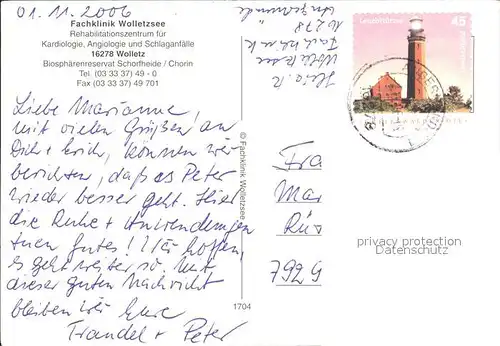 01.11.2006
Fachklinik Wolletzsee
Rehabilitationszentrum für
Kardiologie, Angiologie und Schlaganfälle
16278 Wolletz
Biosphärenreservat Schorfheide / Chorin
Tel (03 33 37) 49 - 0
Fax (03 33 37) 49 701
Liebe Marianne,
mit vielen Grüßen an
Dich + Erich, können wir
berichten, daß es Peter
wieder besser geht. Hier
die Ruhe + Anwendungen
tuen Gutes! Wir hoffen,
es geht weiter so. Mit
dieser guten Nachricht
bleiben wir Eure
Traudel + Peter
© Fachklinik Wolletzsee
1704
16278
Fachklinik
Leuchttürme
45
Fra
Mar
Rüs
7929
privacy protection
Datenschutz